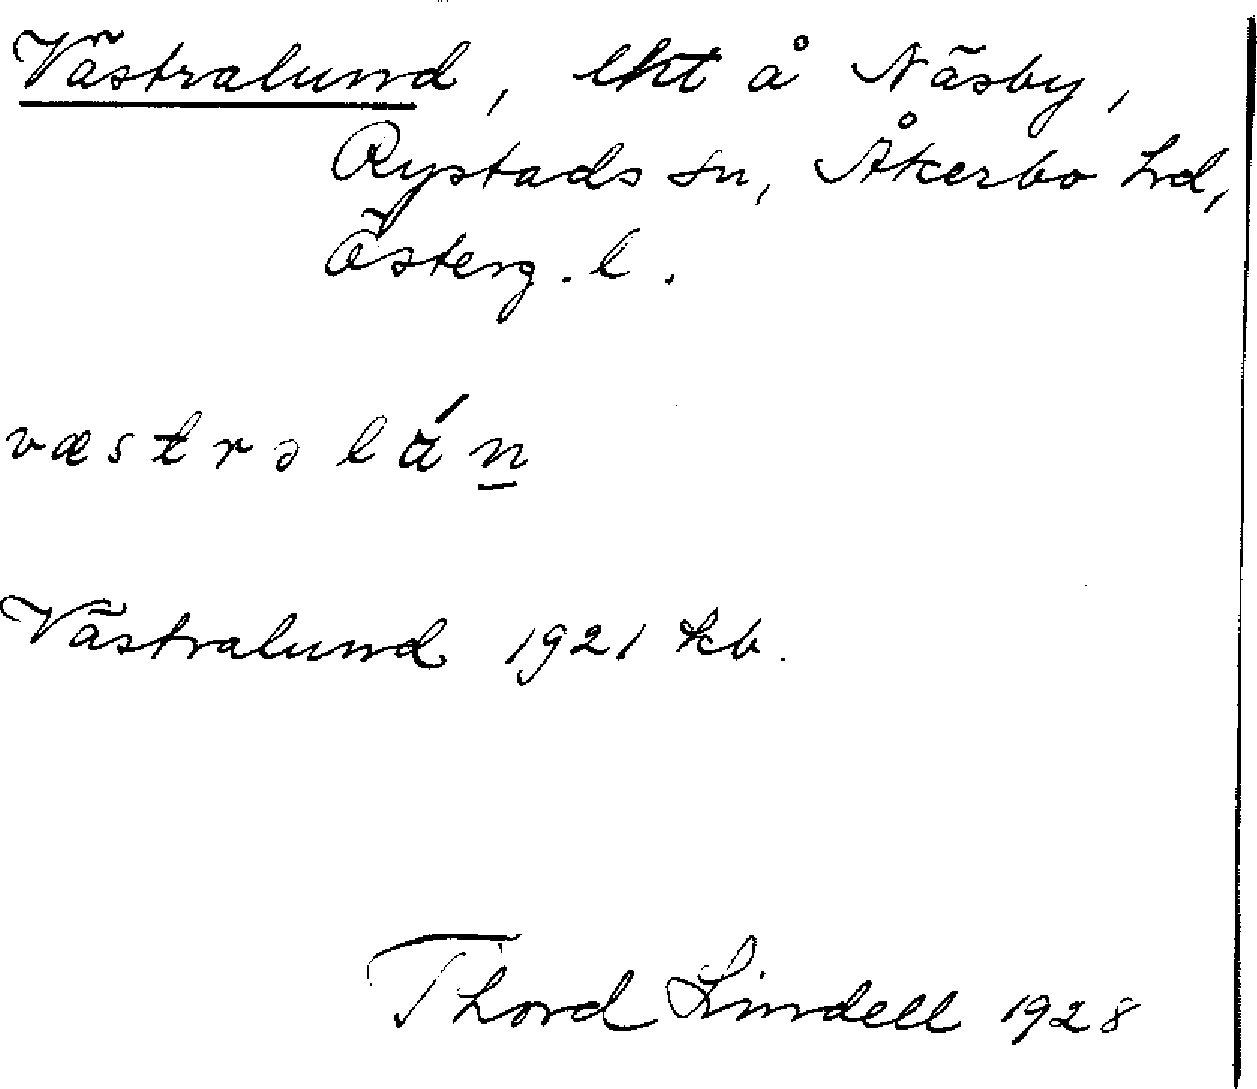 Västralund, lht å Näsby,
Rystads sn, Åkerbo hd,
Österg. l.
væstrəlán
Västralund 1921 kb.
Thord Lindell 1928